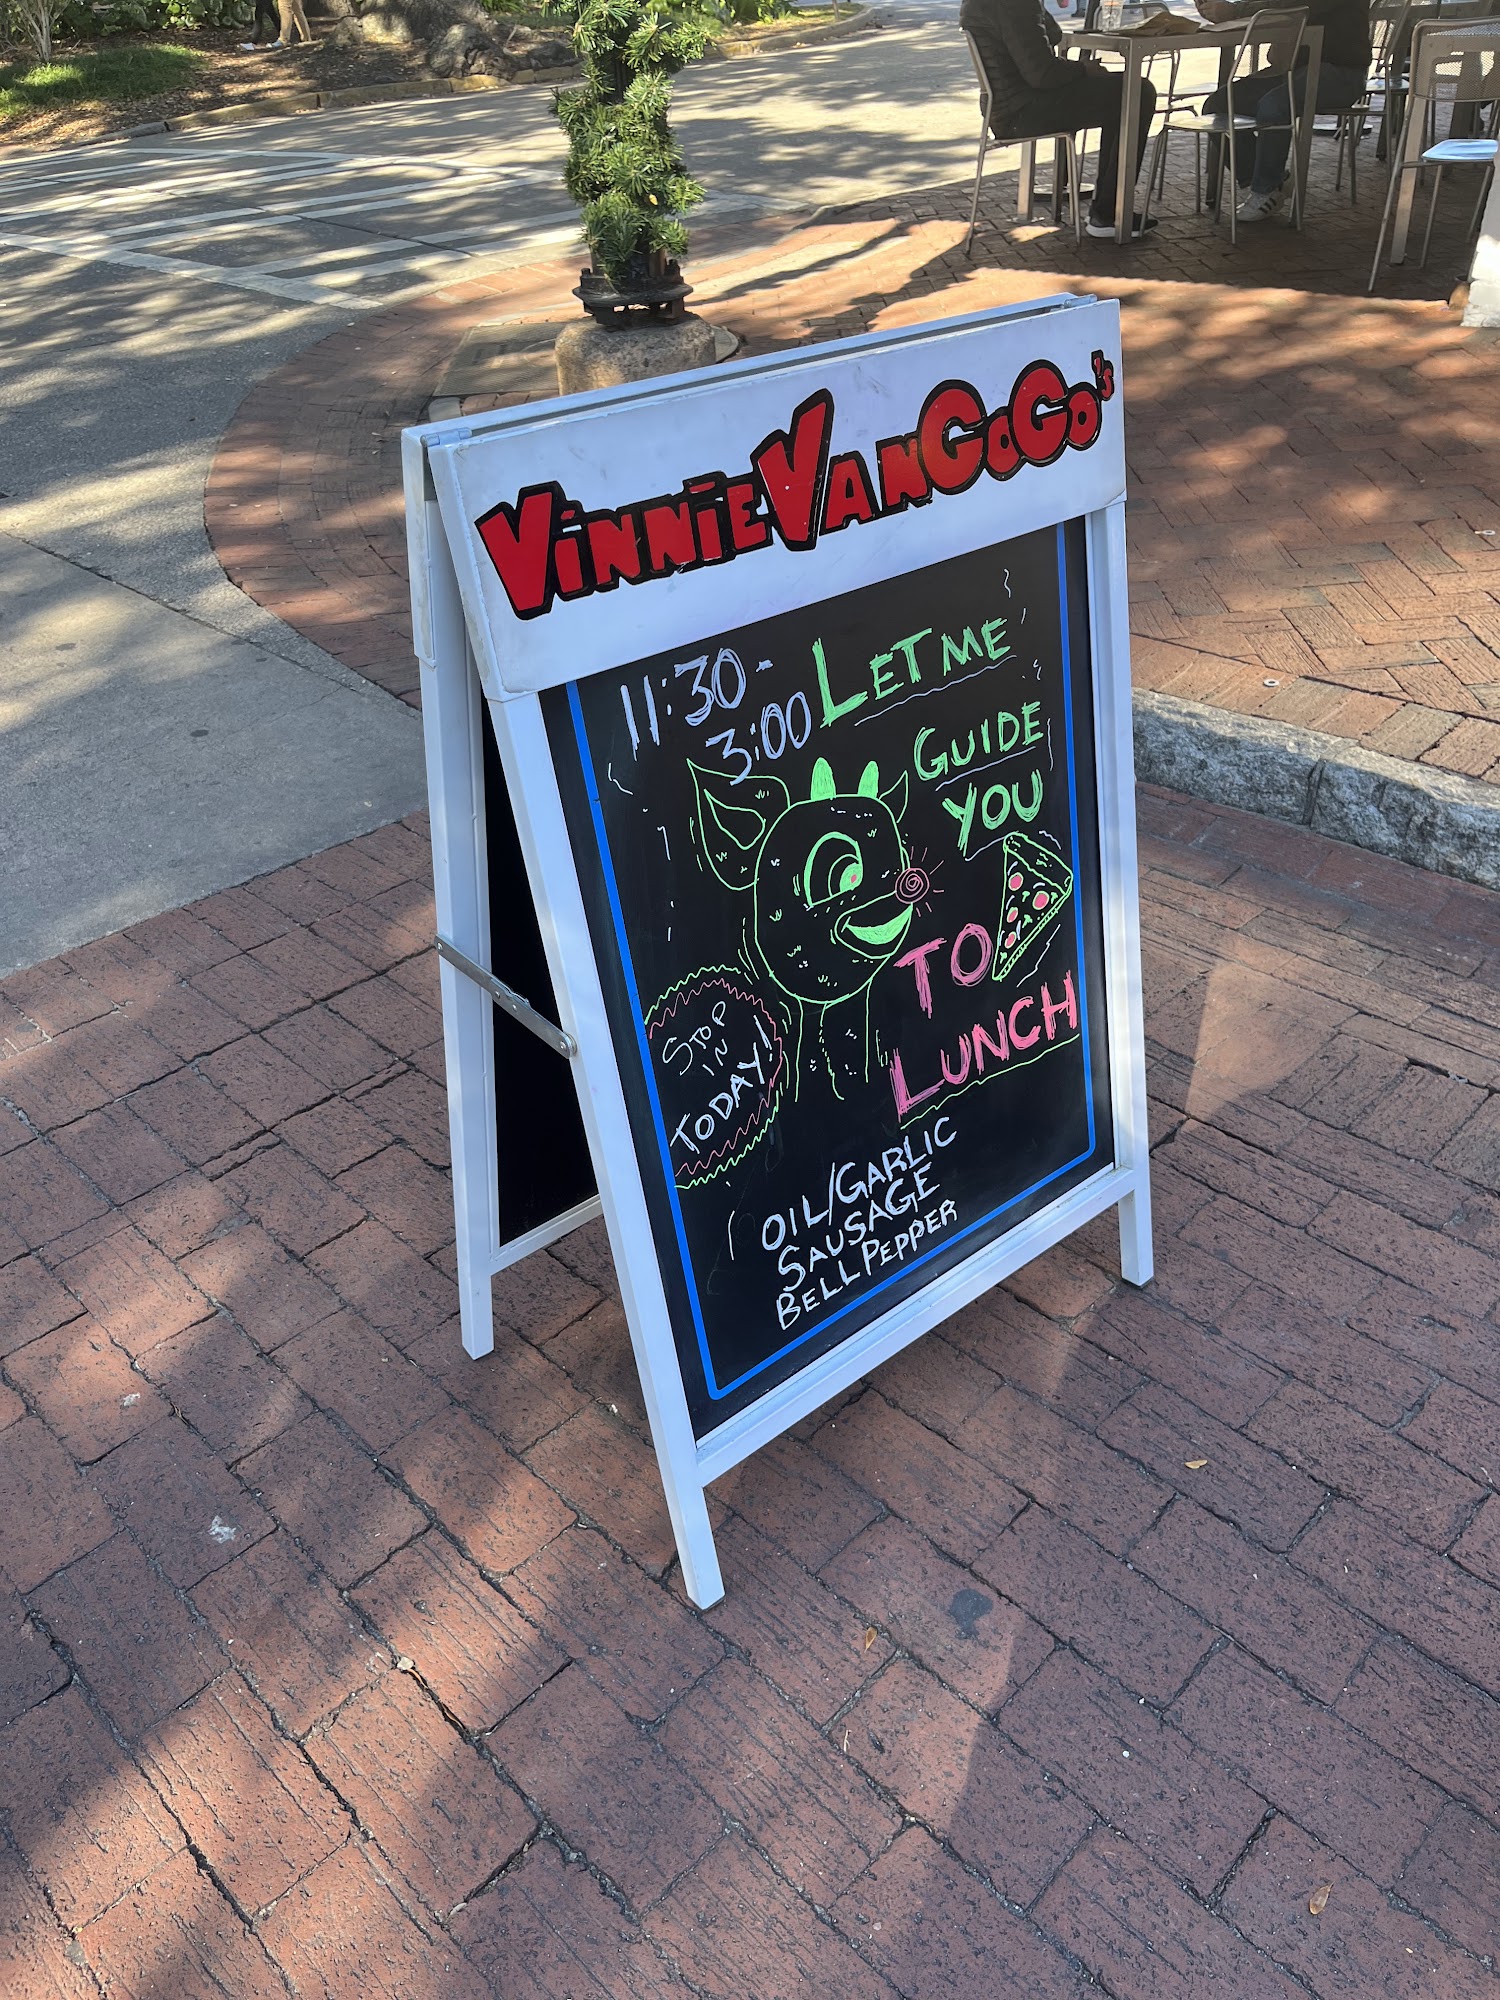 VINNIE VAN GOGO'S
11:30-
3:00
LET ME
GUIDE
YOU
TO
LUNCH
STOP
IN
TODAY!
OIL/GARLIC
SAUSAGE
BELL PEPPER